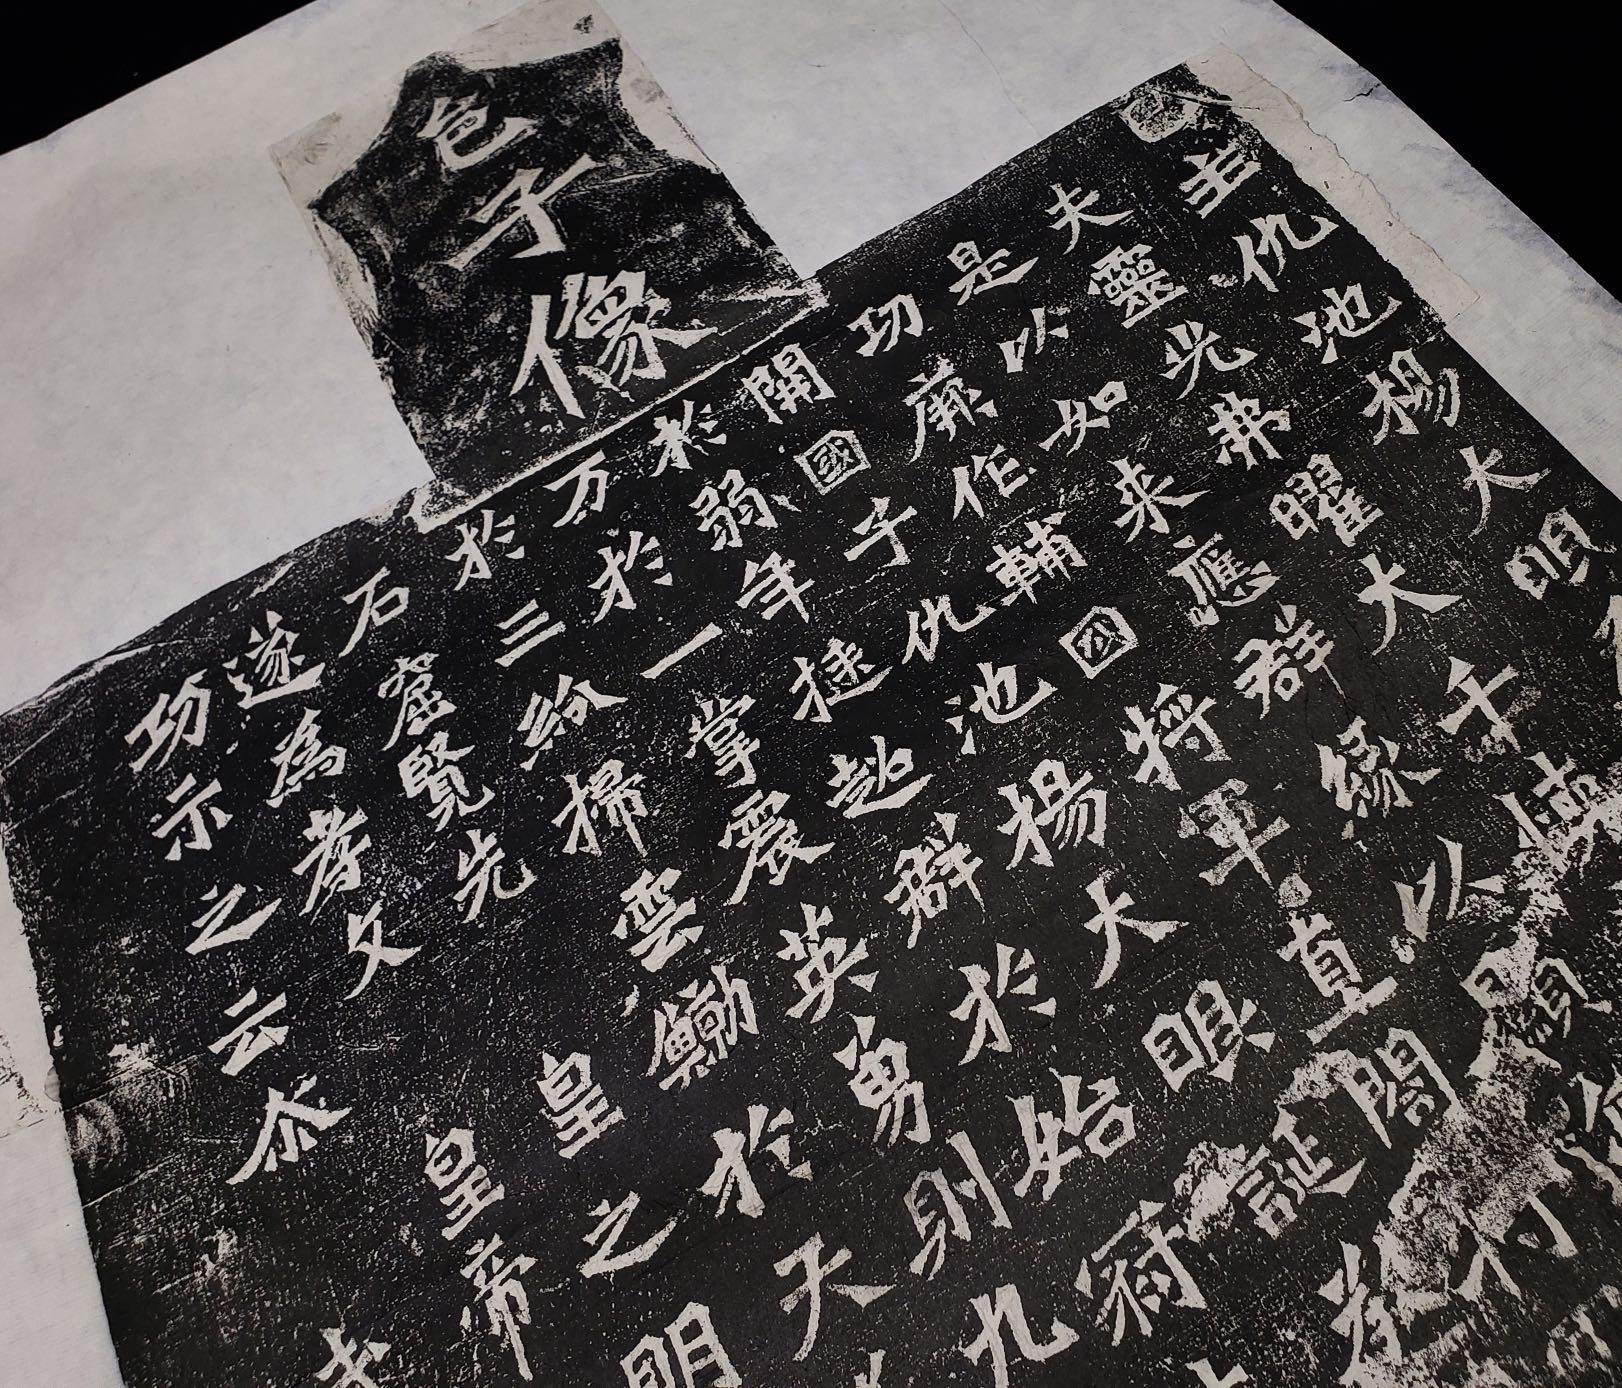 邑子像
邑主仇池楊大眼
夫靈光弗曜大千懷
是以如來應群緣以顯
功厥作輔國將軍直閤將
開國子仇池楊大眼誕承
於弱年挺超群於始冠
万於一掌震英勇則九
於三紛掃雲鯨於天
石窟覽先皇之明
遂為孝文皇帝
功示之云尒